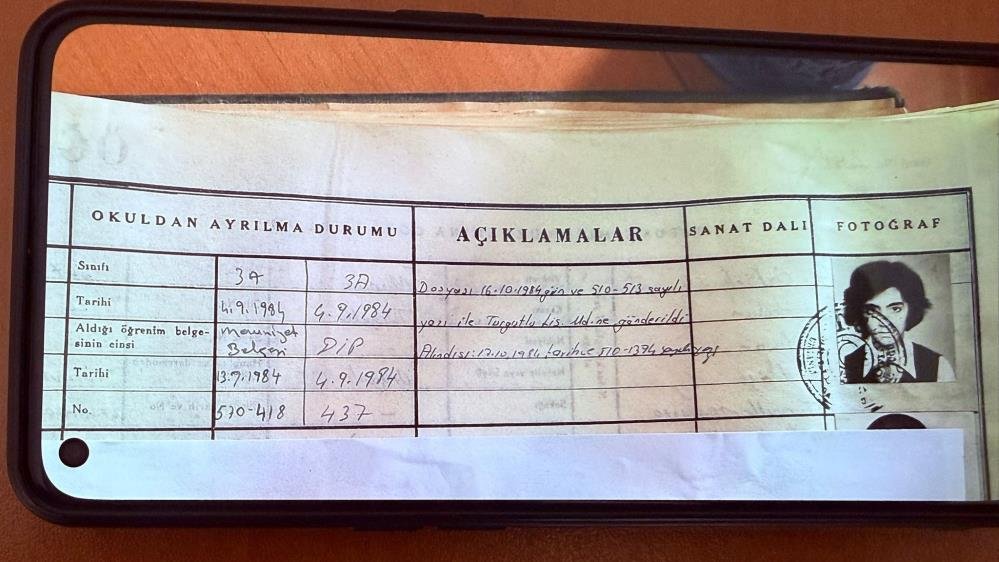 OKULDAN AYRILMA DURUMU AÇIKLAMALAR SANAT DALI FOTOĞRAF
Sınıfı 3A 3A Dosyası 16.10.1984 gün ve 510-513 sayılı
Tarihi 4.9.1984 4.9.1984 yazı ile Turgutlu Lis. Md.ne gönderildi
Aldığı öğrenim belge-
sinin cinsi Mezuniyet Belgesi DİP Alındısı: 17.10.1984 tarih ve 510-1394 sayılı yazı
Tarihi 13.9.1984 4.9.1984
No. 570-418 437